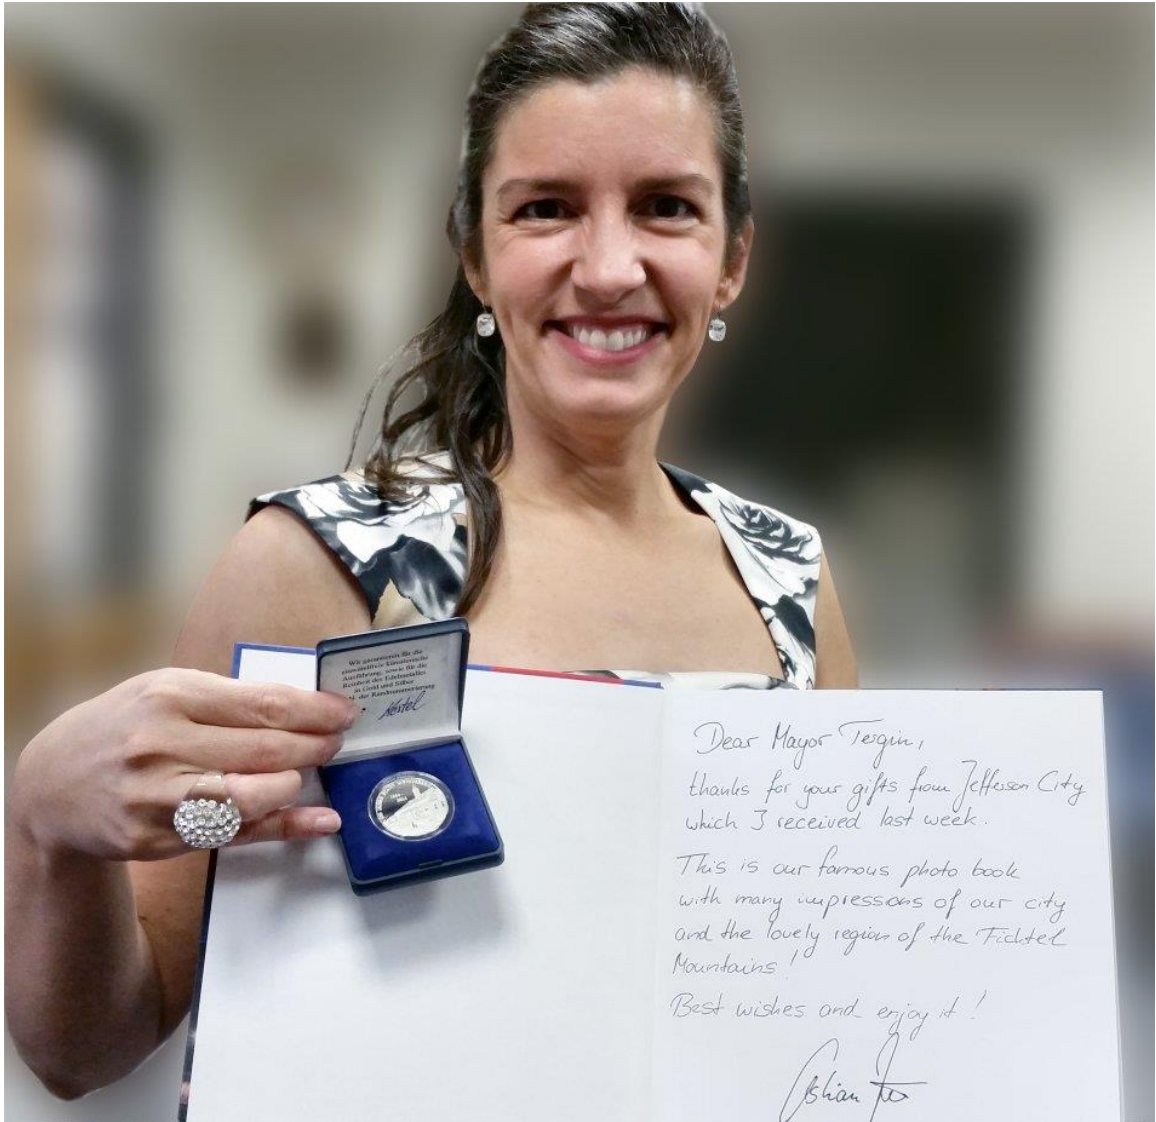 Wir garantieren für die
einwandfreie künstlerische
Ausführung, sowie für die
Reinheit des Edelmetalles
in Gold und Silber
der Randnummerierung
Dear Mayor Tergin,
thanks for your gifts from Jefferson City
which I received last week.
This is our famous photo book
with many impressions of our city
and the lovely region of the Fichtel
Mountains!
Best wishes and enjoy it!